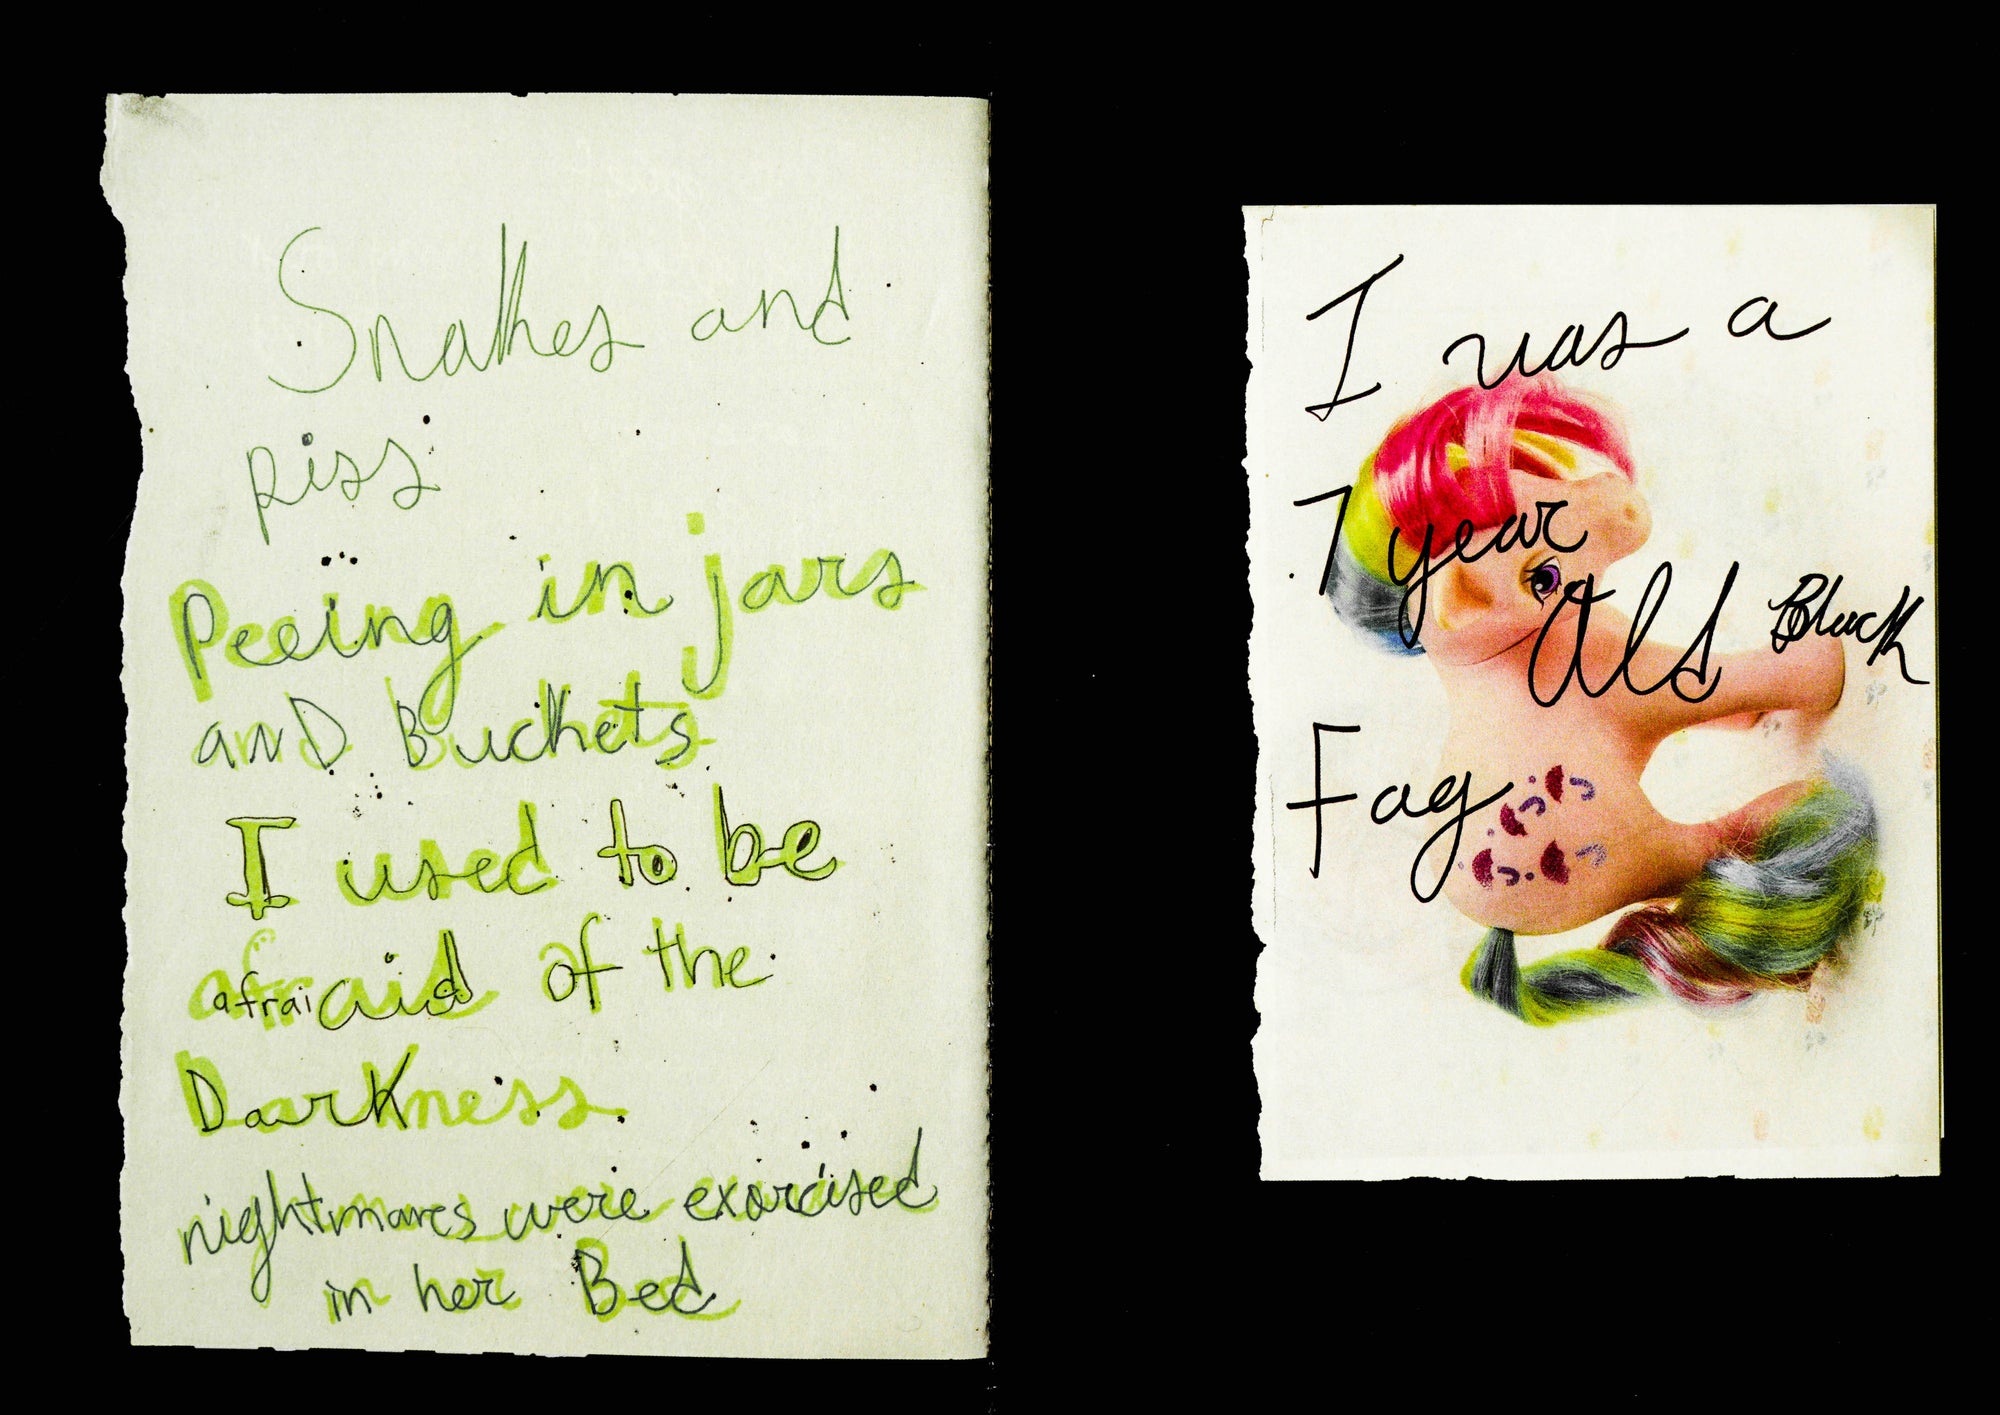 Snakes and
piss
Peeing in jars
anD Buckets
I used to be
afraid of the
Darkness.
nightmares were exorcised
in her Bed
I was a
7 year Old Black
Fag